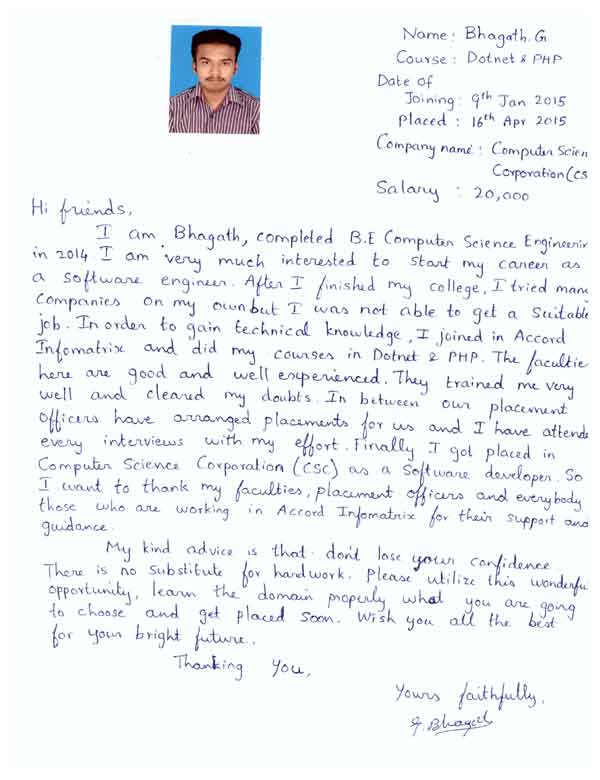 Name: Bhagath. G
Course: Dotnet & PHP
Date of
Joining: 9th Jan 2015
Placed : 16th Apr 2015
Company name: Computer Scien
Corporation (CS
Salary : 20,000
Hi friends,
I am Bhagath, completed B.E Computer Science Engineerin
in 2014 I am very much interested to start my career as
a software engineer. After I finished my college, I tried man
companies on my own but I was not able to get a suitable
job. In order to gain technical knowledge, I joined in Accord
Infomatrix and did my courses in Dotnet & PHP. The facultie
here are good and well experienced. They trained me very
well and cleared my doubts. In between our placement
officers have arranged placements for us and I have attende
every interviews with my effort. Finally I got placed in
Computer Science Corporation (CSC) as a Software developer. So
I want to thank my faculties, placement officers and everybody
those who are working in Accord Infomatrix for their support and
guidance.
My kind advice is that don't lose your confidence
There is no substitute for hardwork. Please utilize this wonderfu
opportunity, learn the domain properly what you are going
to choose and get placed soon. Wish you all the best
for your bright future..
Thanking You,
Yours faithfully,
G. Bhagath